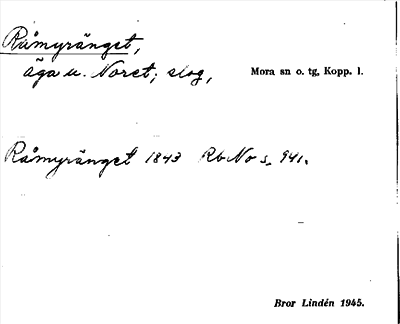 Råmyränget,
äga u. Noret; slog, Mora sn o. tg, Kopp. l.
Råmyränget 1843 Rb No s. 941.
Bror Lindén 1945.